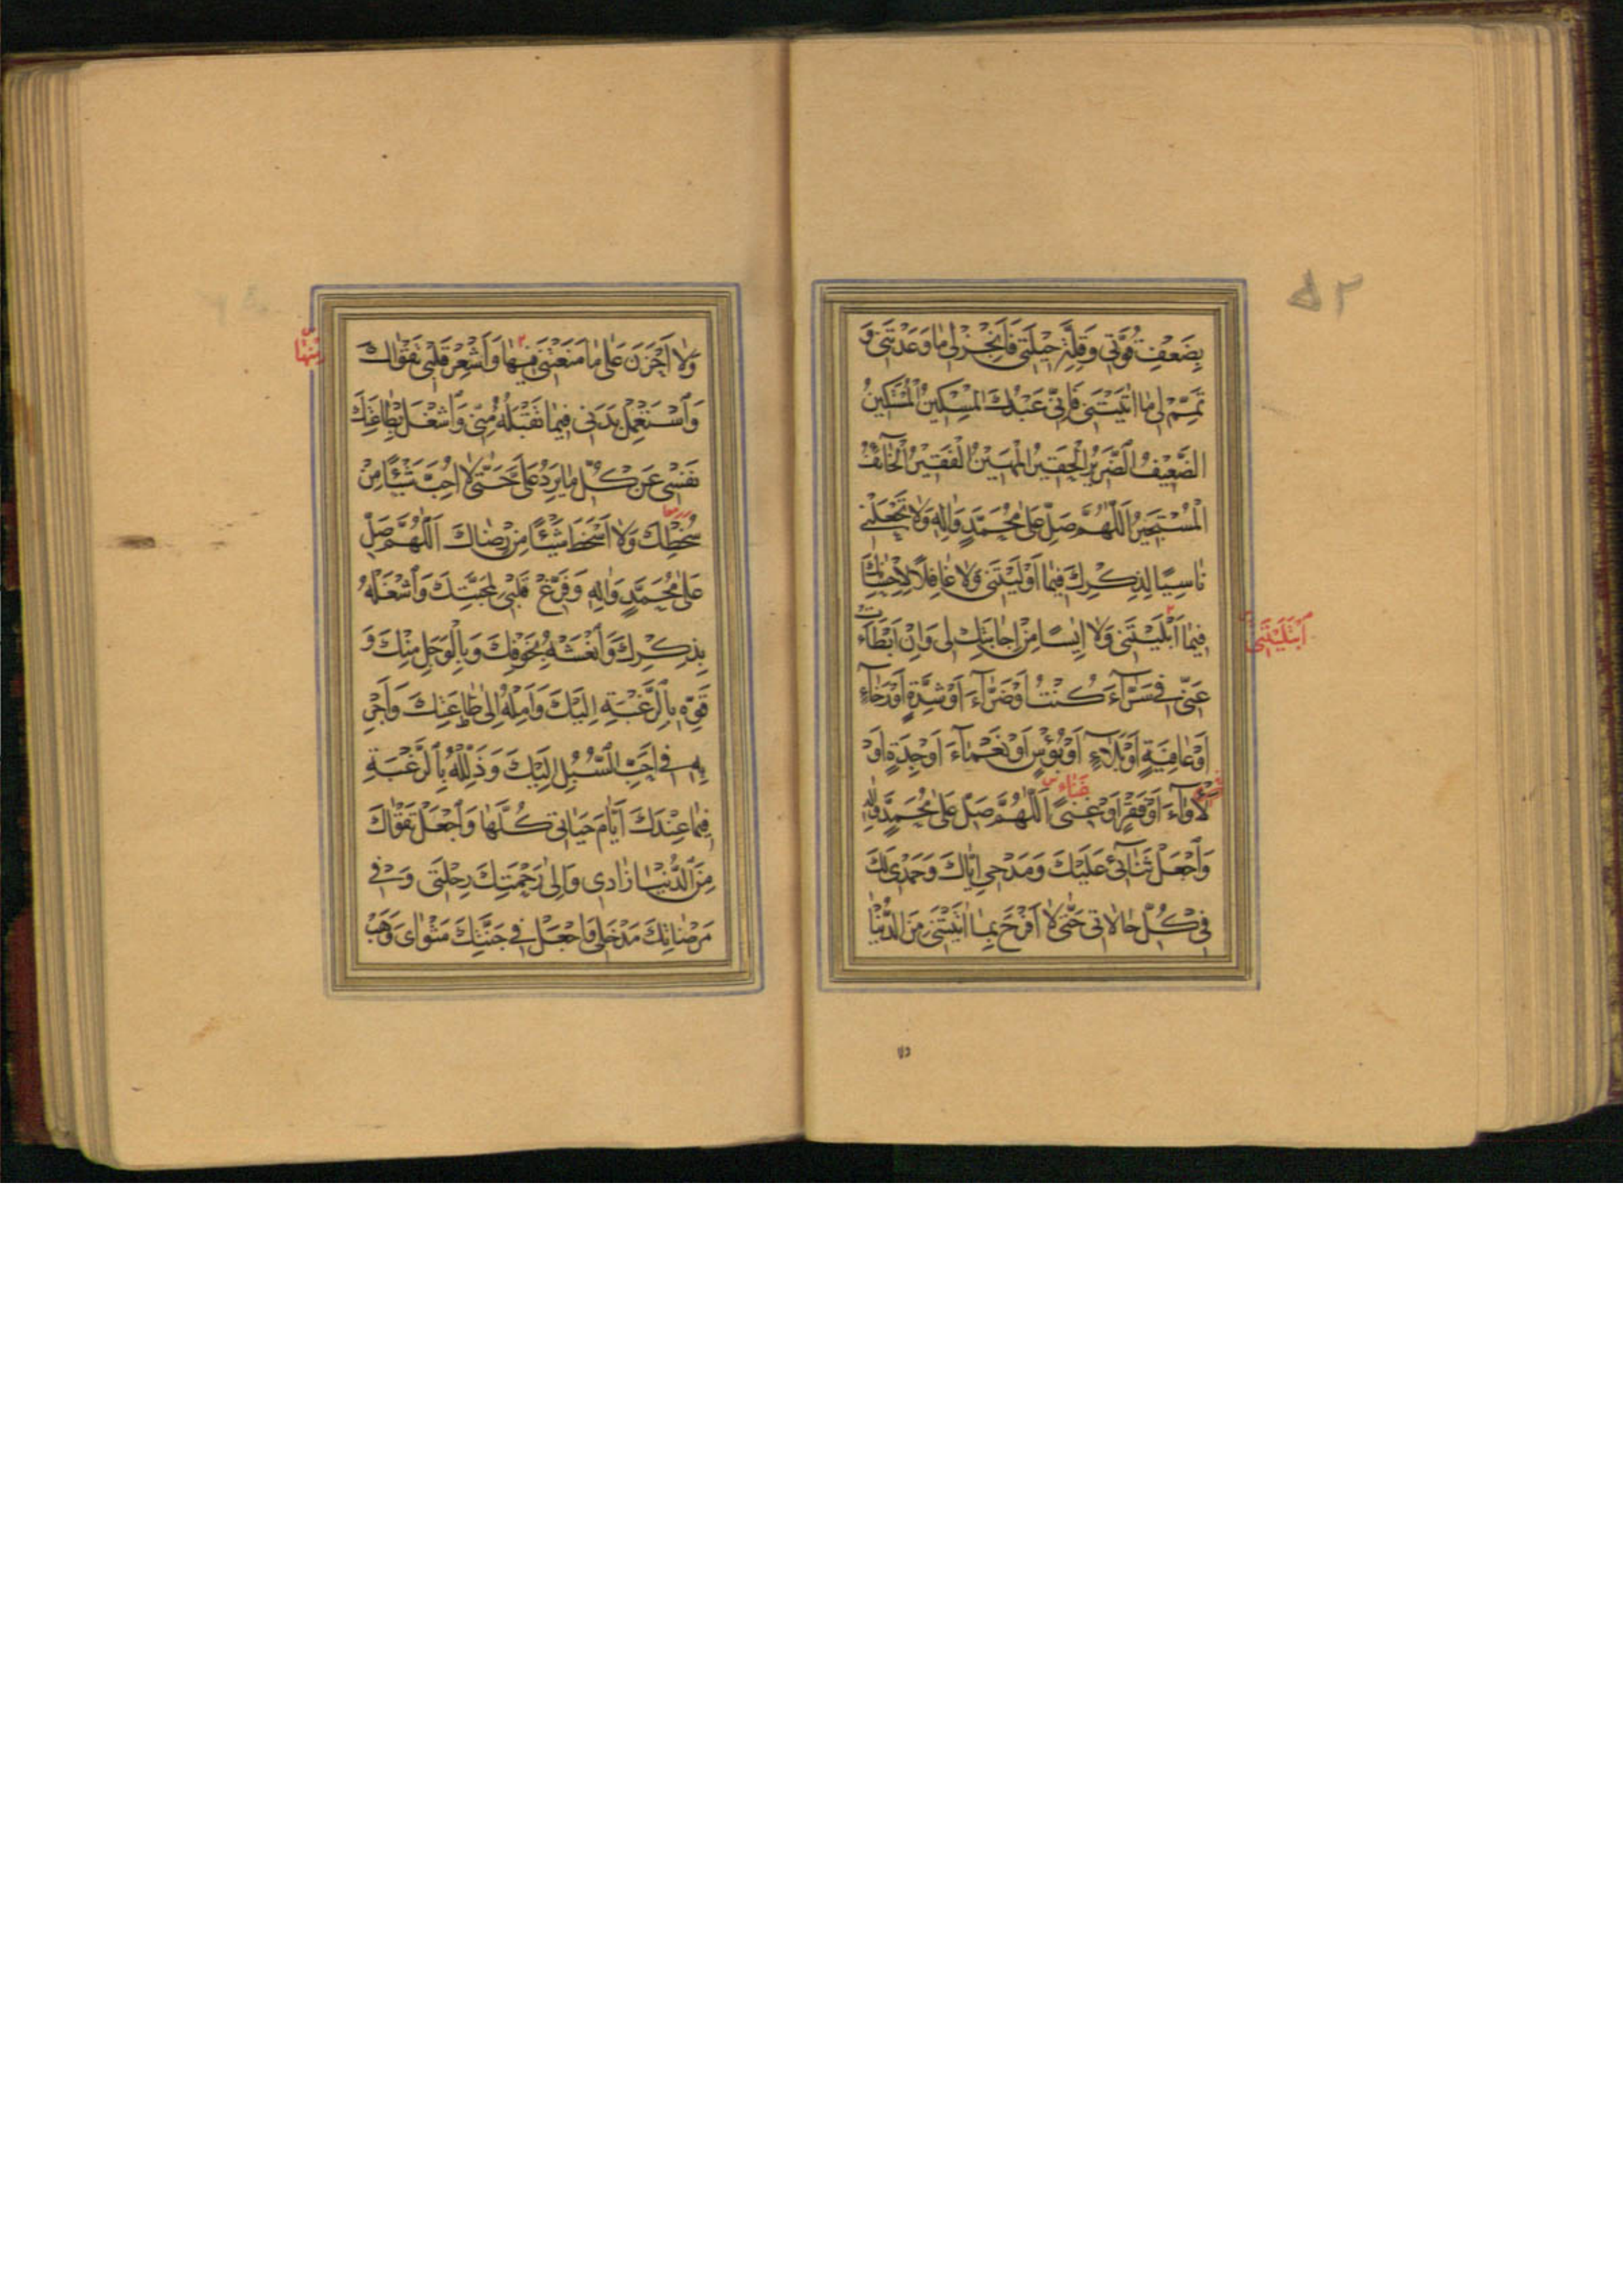 ۵۲
بِضَعْفِ قُوَّتِي وَقِلَّةِ حِيلَتِي فَاَنْجِزْ لِي مَا وَعَدْتَنِي وَ
تَمِّمْ لِي مَا اٰتَيْتَنِي فَاِنِّي عَبْدُكَ الْمِسْكِينُ الْمُسْتَكِينُ
الضَّعِيفُ الضَّرِيرُ الْحَقِيرُ الْمَهِينُ الْفَقِيرُ الْخَآئِفُ
الْمُسْتَجِيرُ اَللّٰهُمَّ صَلِّ عَلٰى مُحَمَّدٍ وَاٰلِهِ وَلَا تَجْعَلْنِي
نَاسِيًا لِذِكْرِكَ فِيمَا اَوْلَيْتَنِي وَلَا غَافِلًا لِاِحْسَانِكَ
فِيمَا اَبْلَيْتَنِي وَلَا اٰيِسًا مِنْ اِجَابَتِكَ لِي وَاِنْ اَبْطَاَتْ
اَبْتَلَيْتَنِي
عَنِّي فِي سَرَّآءَ كُنْتُ اَوْ ضَرَّآءَ اَوْ شِدَّةٍ اَوْ رَخَآءٍ
اَوْ عَافِيَةٍ اَوْ بَلَآءٍ اَوْ بُؤْسٍ اَوْ نَعْمَآءَ اَوْ جِدَةٍ اَوْ
لَأْوَآءَ اَوْ فَقْرٍ اَوْ غِنًى اَللّٰهُمَّ صَلِّ عَلٰى مُحَمَّدٍ وَاٰلِهِ
وَاجْعَلْ ثَنَآئِي عَلَيْكَ وَمَدْحِي اِيَّاكَ وَحَمْدِي لَكَ
فِي كُلِّ حَالَاتِي حَتّٰى لَا اَفْرَحَ بِمَا اٰتَيْتَنِي مِنَ الدُّنْيَا
وَلَا اَحْزَنَ عَلٰى مَا مَنَعْتَنِي فِيهَا وَاَشْعِرْ قَلْبِي تَقْوَاكَ
مِنْهَا
وَاسْتَعْمِلْ بَدَنِي فِيمَا تَقْبَلُهُ مِنِّي وَاشْغَلْ بِطَاعَتِكَ
نَفْسِي عَنْ كُلِّ مَا يَرِدُ عَلَيَّ حَتّٰى لَا اُحِبَّ شَيْئًا مِنْ
سُخْطِكَ وَلَا اَسْخَطَ شَيْئًا مِنْ رِضَاكَ اَللّٰهُمَّ صَلِّ
عَلٰى مُحَمَّدٍ وَاٰلِهِ وَفَرِّغْ قَلْبِي لِمَحَبَّتِكَ وَاشْغَلْهُ
بِذِكْرِكَ وَانْعَشْهُ بِخَوْفِكَ وَبِالْوَجَلِ مِنْكَ وَ
قَوِّهِ بِالرَّغْبَةِ اِلَيْكَ وَاَمِلْهُ اِلٰى طَاعَتِكَ وَاَجْرِ
بِهِ فِي اَحَبِّ السُّبُلِ اِلَيْكَ وَذَلِّلْهُ بِالرَّغْبَةِ
فِيمَا عِنْدَكَ اَيَّامَ حَيَاتِي كُلَّهَا وَاجْعَلْ تَقْوَاكَ
مِنَ الدُّنْيَا زَادِي وَاِلٰى رَحْمَتِكَ رِحْلَتِي وَفِي
مَرْضَاتِكَ مَدْخَلِي وَاجْعَلْ فِي جَنَّتِكَ مَثْوَايَ وَهَبْ